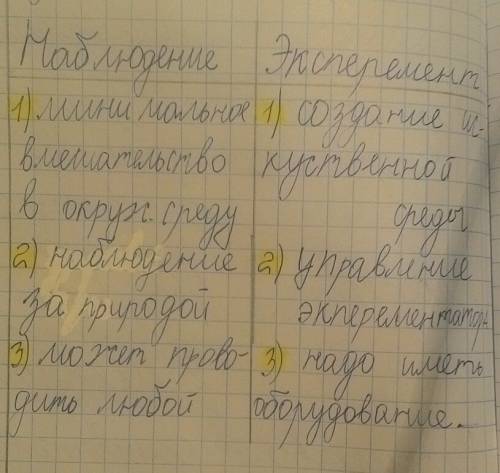 Наблюдение
1) минимальное
вмешательство
в окруж. среду
2) наблюдение
за природой
3) может прово-
дить любой
Эксперемент
1) создание ис-
куственной
среды
2) управление
экперементатора
3) надо иметь
оборудование.